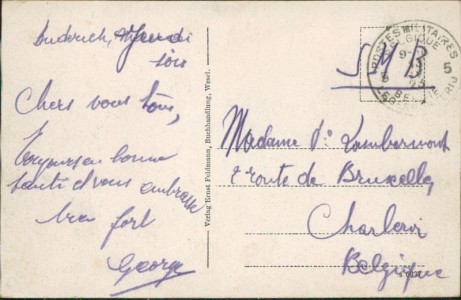 Büderich, Jeudi
soir
Chers vous tous,
Toujours en bonne
santé et vous embrasse
bien fort
George
Verlag Ernst Feldmann, Buchhandlung, Wesel.
S.M.B
POSTES MILITAIRES
BELGIQUE
5
LEGERPOSTERIJ
Madame Vve Lambermont
route de Bruxelles
Charleroi
Belgique